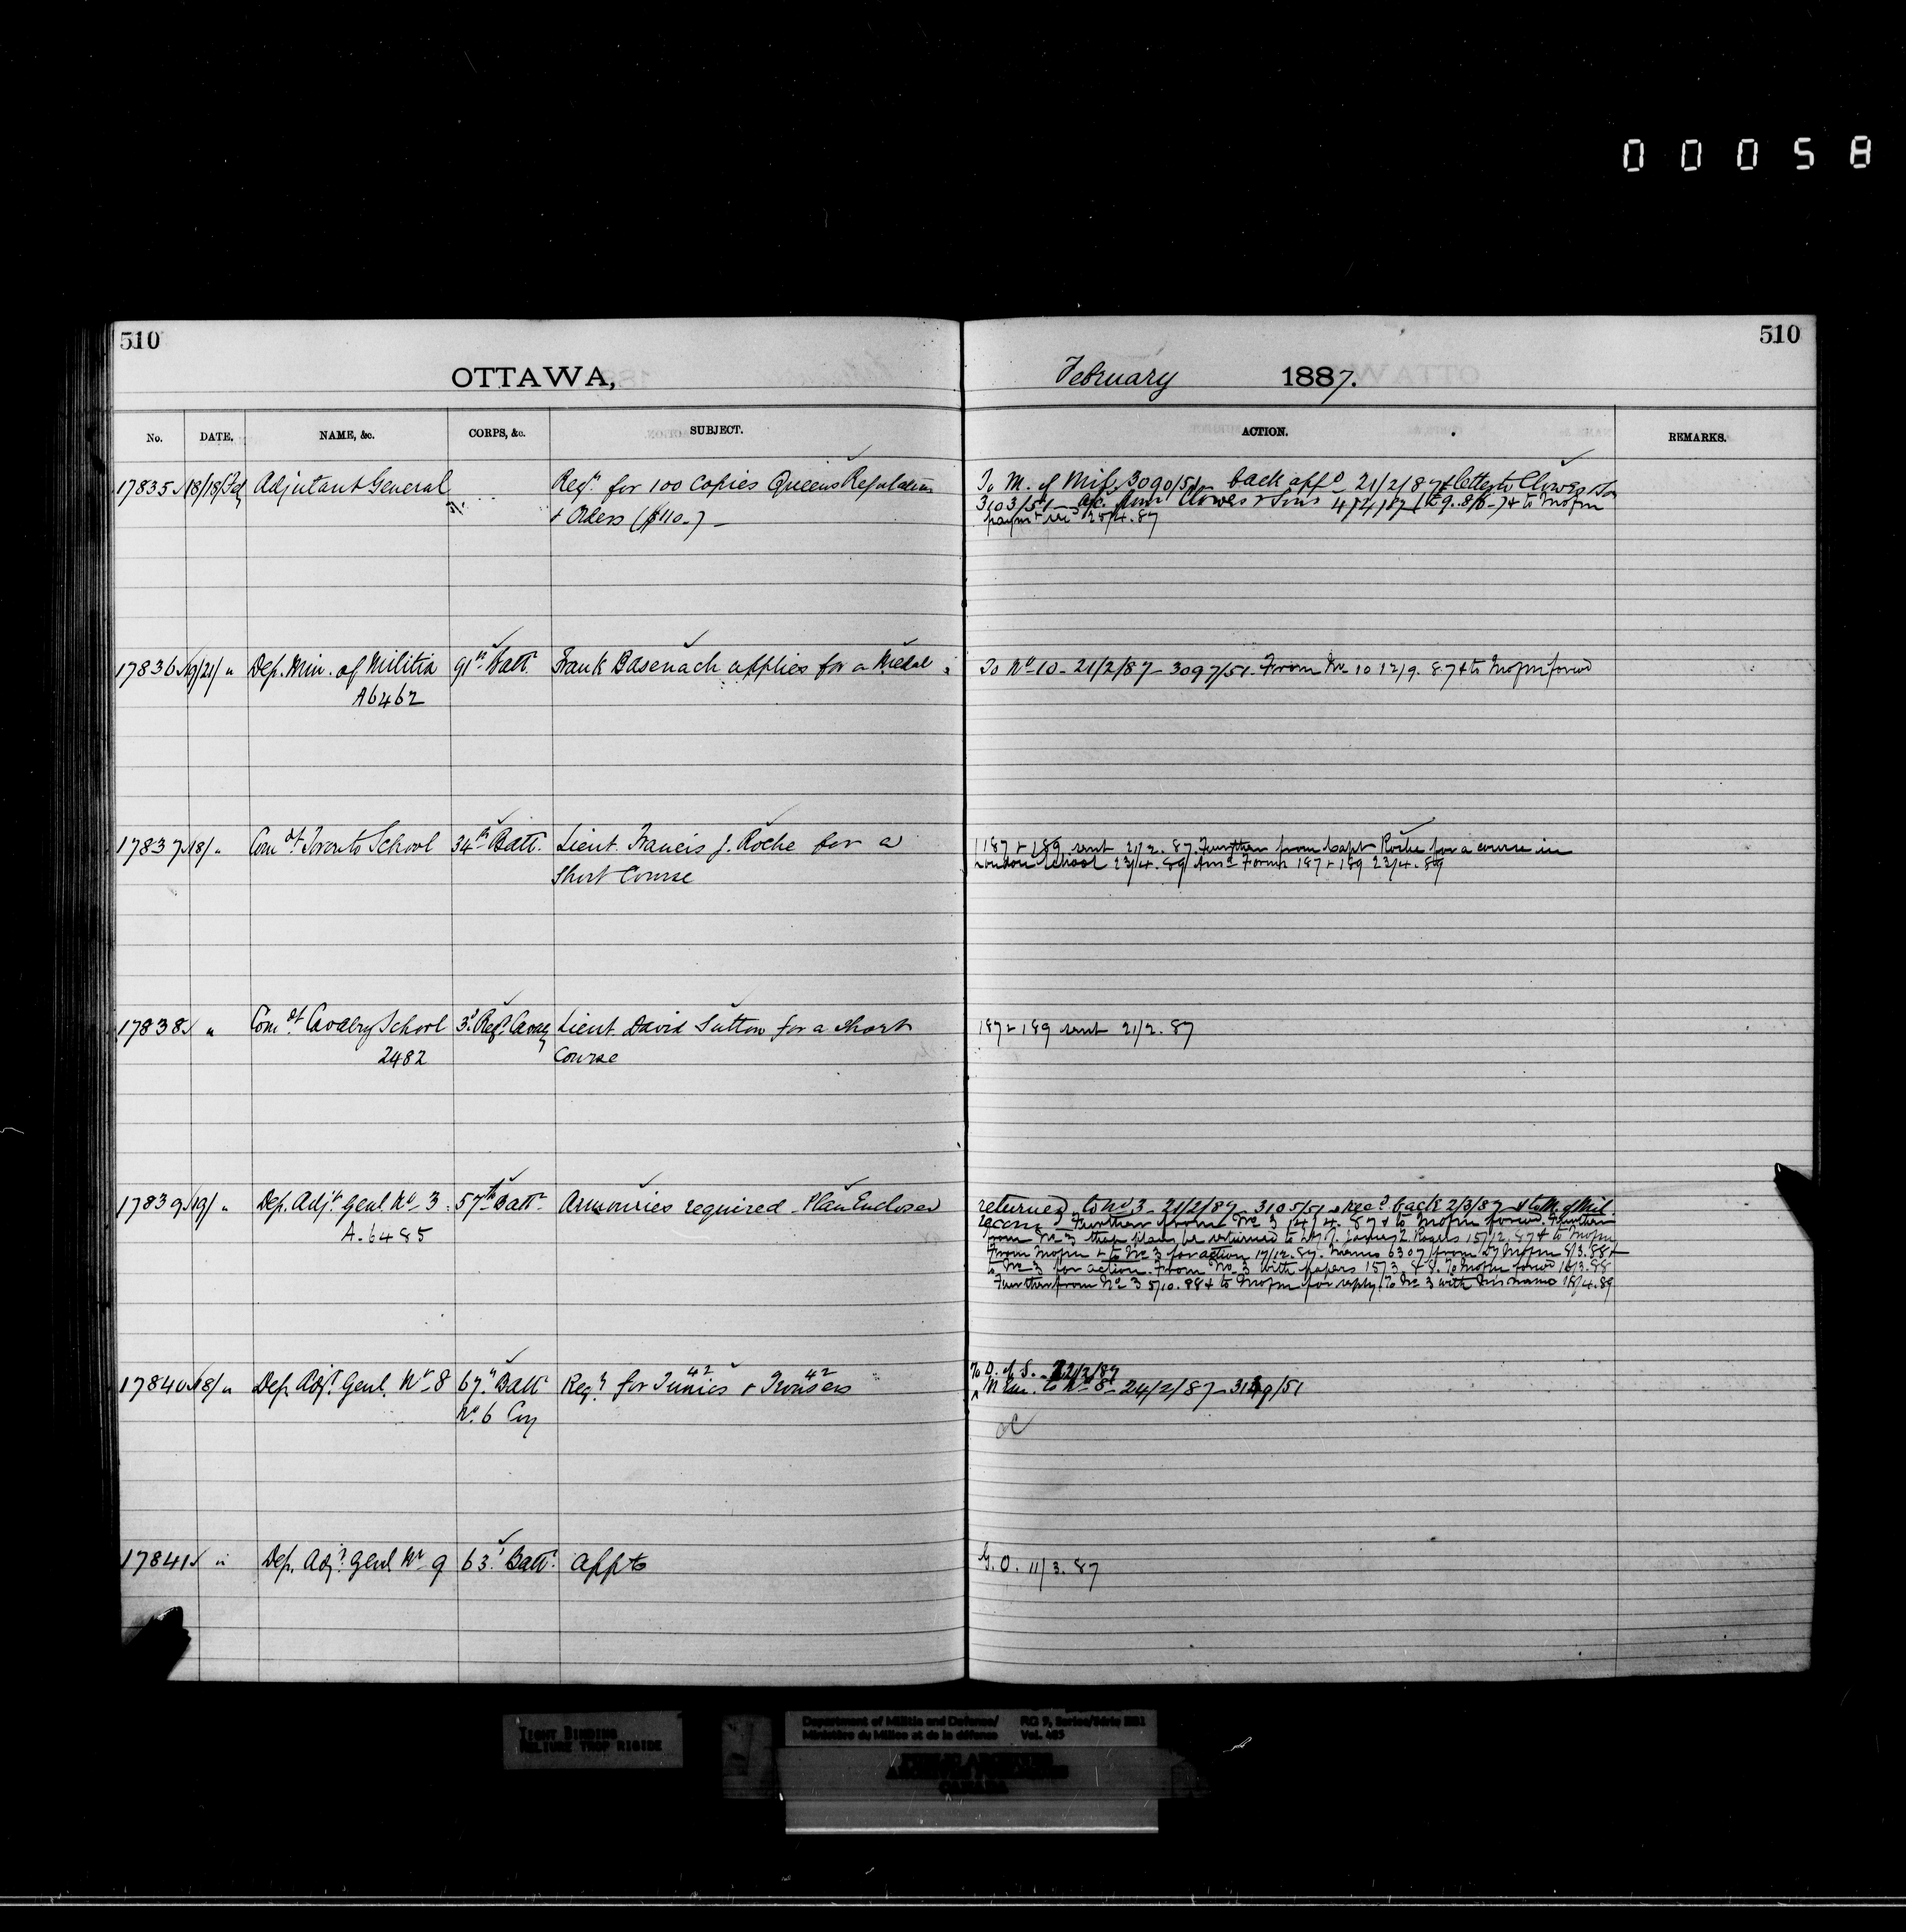 00058
510
510
OTTAWA,
February 1887.
No. DATE. NAME, &c. CORPS, &c. SUBJECT. ACTION. REMARKS.
17835 18/18/Feb Adjutant General Reqn for 100 Copies Queens Regulations
& Orders ($110.) —
To M. of Mil, 3090/51 – back appd 21/2/87 & letter to Clowes & Son
3103/51 – a/c from Clowes & Sons 4/4/87 & to Mofm
25/4.87
17836 19/21/ " Dep. Min. of Militia 91st Batt. Frank Basenach applies for a Medal
A6462
To No 10 – 21/2/87 – 3097/51. From No 10 12/9.87 & to Mofm forwd
17837 18/ " Comdt Toronto School 34th Batt. Lieut. Francis J. Roche for a
Short Course
187 & 189 sent 21/2.87. Further from Capt Roche for a course in
London School 23/4.89 Ansd Forms 187 & 189 23/4.89
17838 " Comdt Cavalry School 3d Regt Cavy Lieut David Sutton for a short
2482 Course
187 & 189 sent 21/2.87
17839 19/ " Dep. Adjt Genl No 3 57th Batt. Armouries required – Plan Enclosed
A.6485
returned to No 3 – 21/2/87 – 3105/51 & recd back 2/3/87 & to M. of Mil.
Further from No 3 14/4.87 & to Mofm forwd. Further
from No 3 that plans be returned to Lt. Col. James Z. Rogers 15/12.87 & to Mofm
From Mofm & to No 3 for action 17/12.87. Memo 6307 from Dy Mofm 8/3.88 &
to No 3 for action. From No 3 with papers 15/3.88. To Mofm forwd 16/3.88
Further from No 3 5/10.88 & to Mofm for reply. To No 3 with Mins memo 18/4.89
17840 18/ " Dep. Adjt Genl. No 8 67th Batt Reqn for 42 Tunics & 42 Trousers
No. 6 Coy
To D. of S. 22/2/87
to No 8 – 24/2/87 – 3129/51
17841 " Dep. Adjt. Genl No 9 63d Batt. appts
G.O. 11/3.87
TIGHT BINDING
RELIURE TROP RIGIDE
Department of Militia and Defence/
Ministère du Milice et de la défense
RG 9, Series/Série IIB1
Vol. 485
PUBLIC ARCHIVES
ARCHIVES PUBLIQUES
CANADA